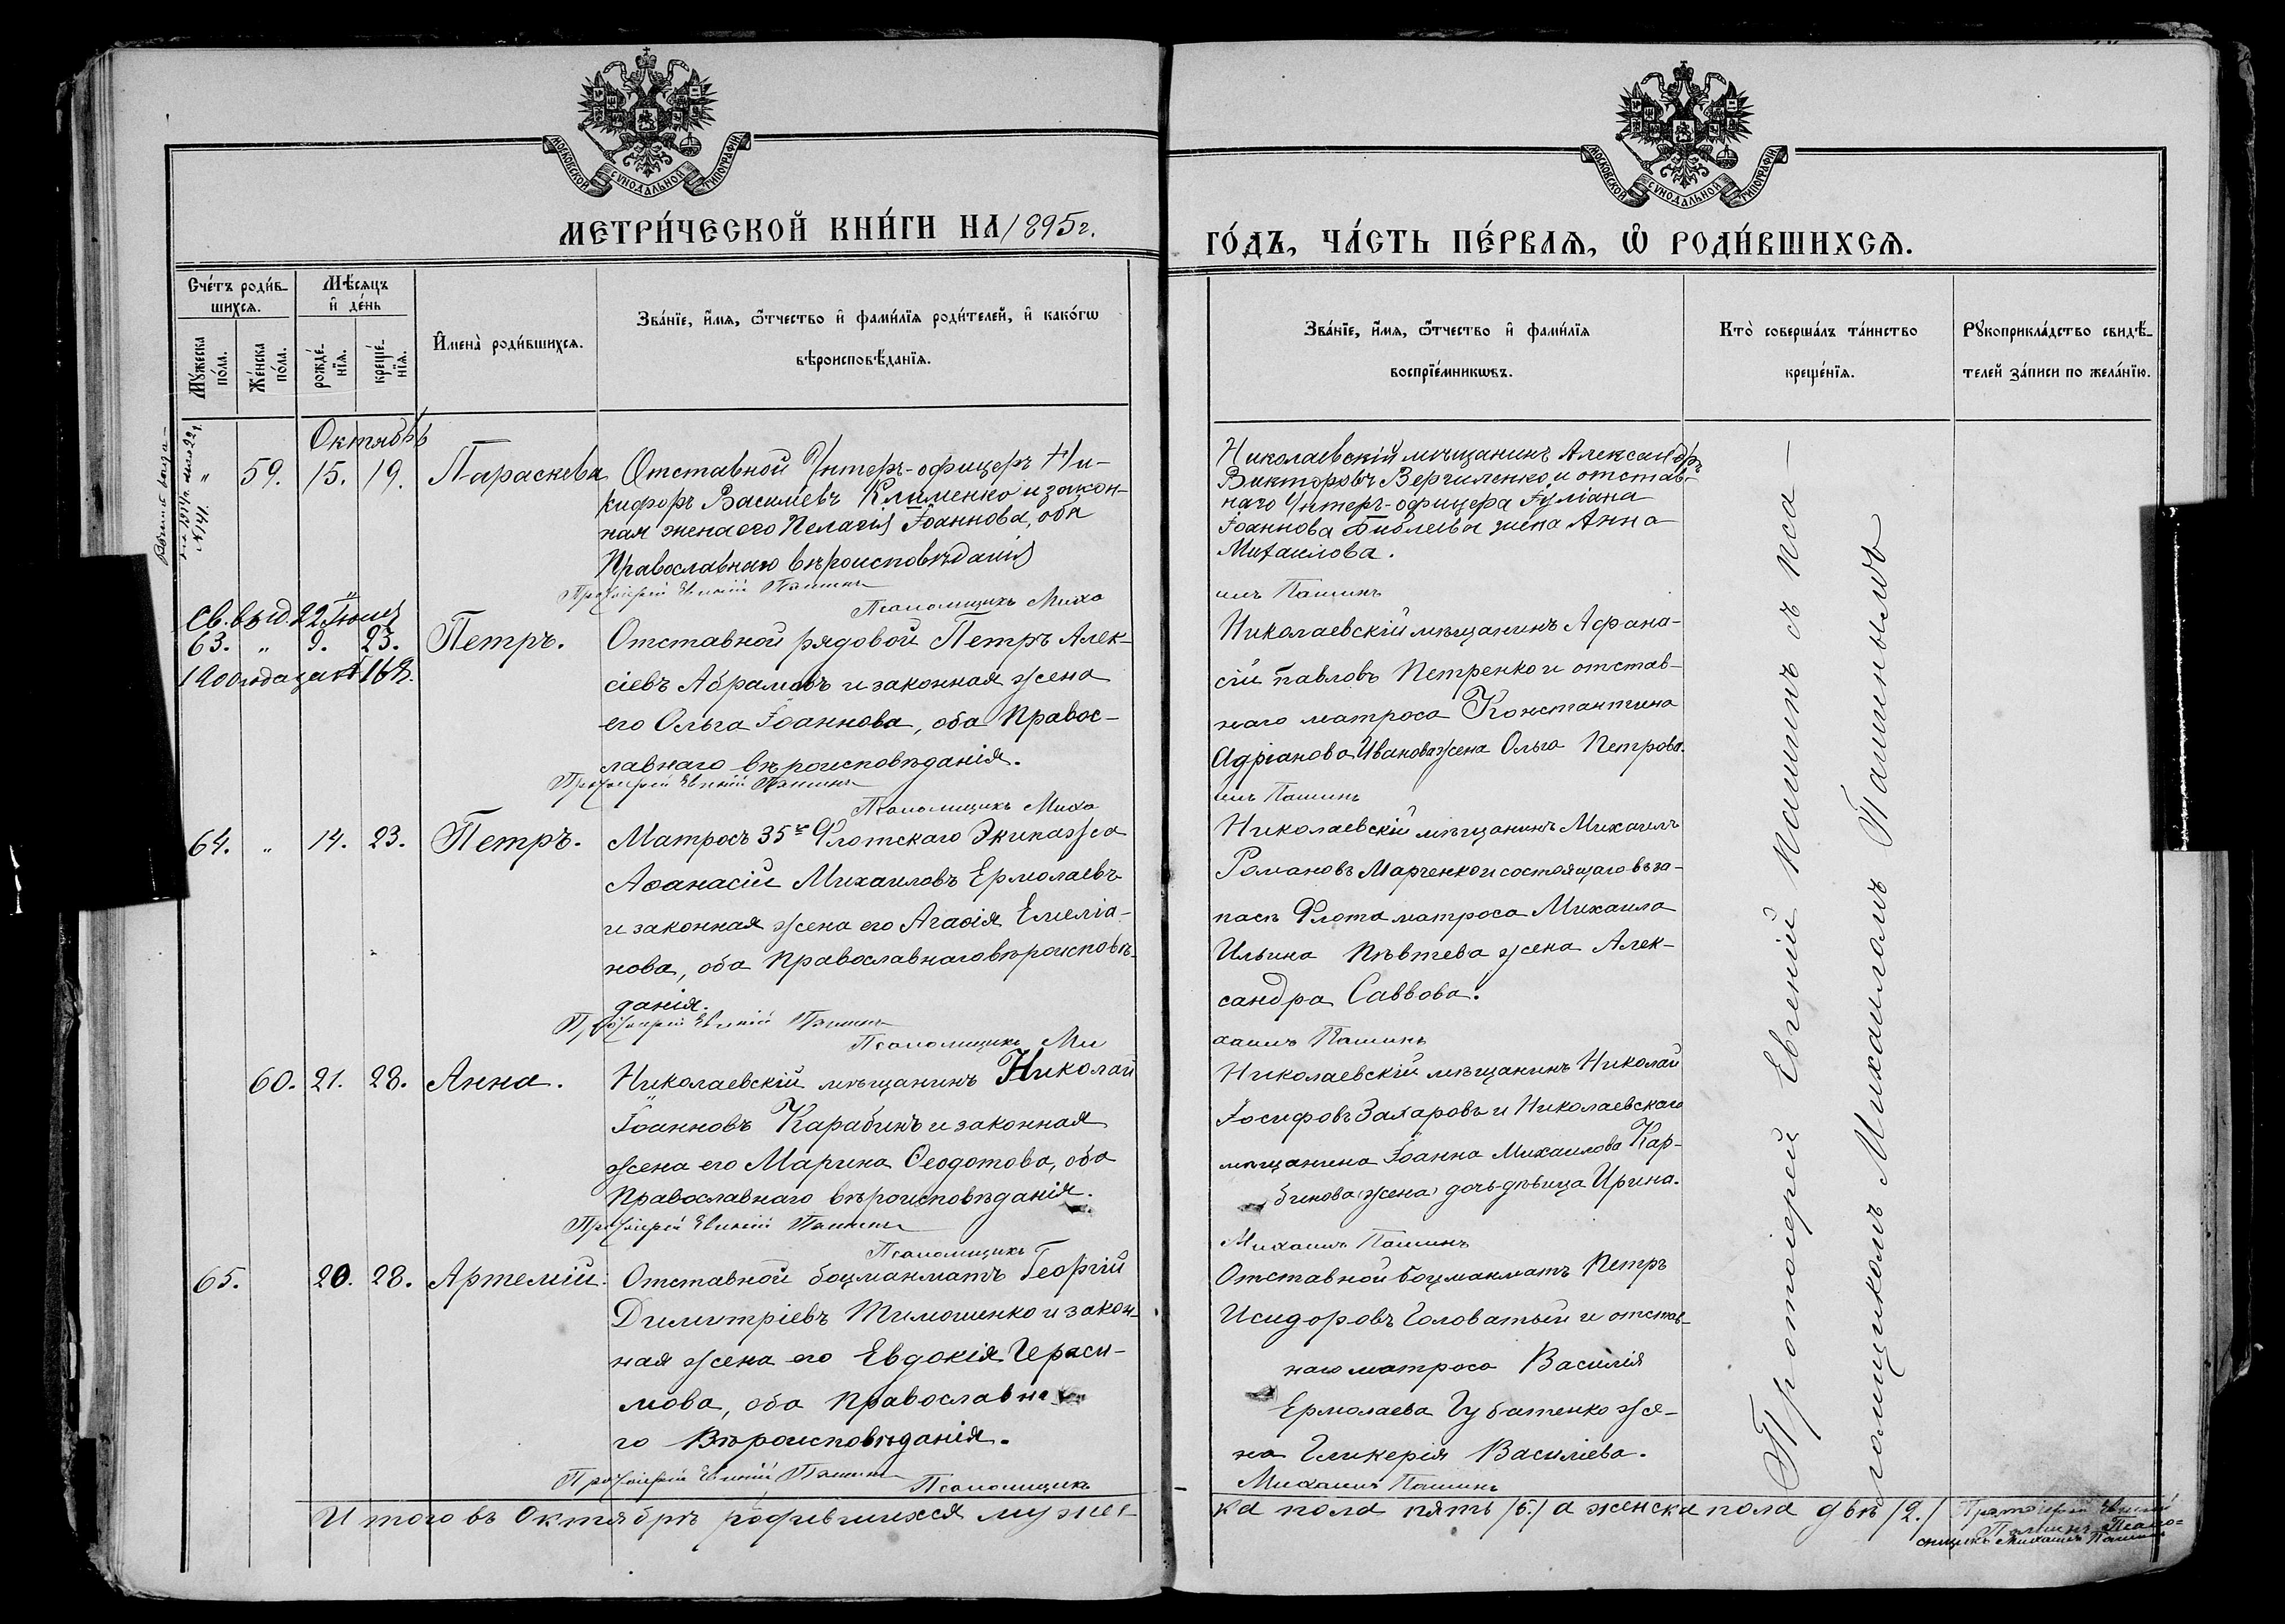 МОСКОВСКОЙ СѴНОДАЛЬНОЙ ТИПОГРАФІИ
МЕТРИ́ЧЕСКОЙ КНИ́ГИ НА 1895 г.
Сче́тъ роди́в-
шихсѧ.
Мѣ́сѧцъ
и҆ де́нь
Мꙋ́жеска
по́ла.
Же́нска
по́ла.
рожде́-
нїѧ.
креще́-
нїѧ.
И҆мена̀ роди́вшихсѧ.
Зва́нїе, и҆́мѧ, ѻ҆́тчество и҆ фами́лїѧ роди́телей, и҆ како́гѡ
вѣроисповѣ́данїѧ.
Октябрь
№ 141.
„ 59. 15. 19. Параскева
Отставной Унтеръ-офицеръ Ни-
кифоръ Василіевъ Клименко и закон-
ная жена его Пелагія Іоаннова, оба
Православнаго вѣроисповѣданія
Протоіерей Евгеній Пашинъ
Псаломщикъ Миха
Св. выд. 22 Іюня
63. „ 9. 23. Петръ.
1900 года за № 162.
Отставной рядовой Петръ Алек-
сіевъ Абрамовъ и законная жена
его Ольга Іоаннова, оба Правос-
лавнаго вѣроисповѣданія.
Протоіерей Евгеній Пашинъ
Псаломщикъ Миха
64. „ 14. 23. Петръ.
Матросъ 35го Флотскаго Экипажа
Аѳанасій Михаиловъ Ермолаевъ
и законная жена его Агаѳія Емеліа-
нова, оба Православнаго вѣроисповѣ-
данія.
Протоіерей Евгеній Пашинъ
Псаломщикъ Ми
60. 21. 28. Анна.
Николаевскій мѣщанинъ Николай
Іоанновъ Карабинъ и законная
жена его Марина Ѳеодотова, оба
Православнаго вѣроисповѣданія.
Протоіерей Евгеній Пашинъ
Псаломщикъ
65. 20. 28. Артемій.
Отставной боцманматъ Георгій
Димитріевъ Тимошенко и закон-
ная жена его Евдокія Гераси-
мова, оба Православна
го Вѣроисповѣданія.
Протоіерей Евгеній Пашинъ
Псаломщикъ
Итого въ Октябрѣ родившихся мужес-
МОСКОВСКОЙ СѴНОДАЛЬНОЙ ТИПОГРАФІИ
ГО́ДЪ, ЧА́СТЬ ПЕ́РВАѦ, Ѡ҆ РОДИ́ВШИХСѦ.
Зва́нїе, и҆́мѧ, ѻ҆́тчество и҆ фами́лїѧ
воспрїе́мникѡвъ.
Кто̀ соверша́лъ та́инство
креще́нїѧ.
Рꙋкоприкла́дство свидѣ́-
телей за́писи по жела́нїю.
Николаевскій мѣщанинъ Александръ
Викторовъ Вергиленко и отстав-
наго Унтеръ-офицера Іуліана
Іоаннова Библева жена Анна
Михаилова.
илъ Пашинъ
Николаевскій мѣщанинъ Афана-
сій Павловъ Петренко и отстав-
наго матроса Константина
Адріанова Иванова жена Ольга Петрова.
илъ Пашинъ
Николаевскій мѣщанинъ Михаилъ
Романовъ Марченко и состоящаго въ за-
пасѣ Флота матроса Михаила
Ильина Пѣвтева жена Алек-
сандра Саввова.
хаилъ Пашинъ
Николаевскій мѣщанинъ Николай
Іосифовъ Захаровъ и Николаевскаго
мѣщанина Іоанна Михаилова Кар-
бинова (жена) дочь-дѣвица Ирина.
Михаилъ Пашинъ
Отставной боцманматъ Петръ
Исидоровъ Головатый и отстав-
наго матроса Василія
Ермолаева Губатенко же-
на Гликерія Василіева.
Михаилъ Пашинъ
ка пола пять /5./ а женска пола двѣ /2./
Протоіерей Евгеній Пашинъ съ пса-
ломщикомъ Михаиломъ Пашинымъ
Протоіерей Евгеній
Пашинъ Псало-
мщикъ Михаилъ Пашинъ